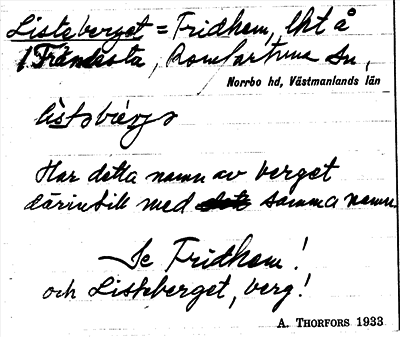 Listeberget = Fridhem, lht å
1 Fränsta, Romfartuna sn,
Norrbo hd, Västmanlands län
Har detta namn av berget
därintill med samma namn
Se Fridhem!
och Listeberget, berg!
A. THORFORS 1933